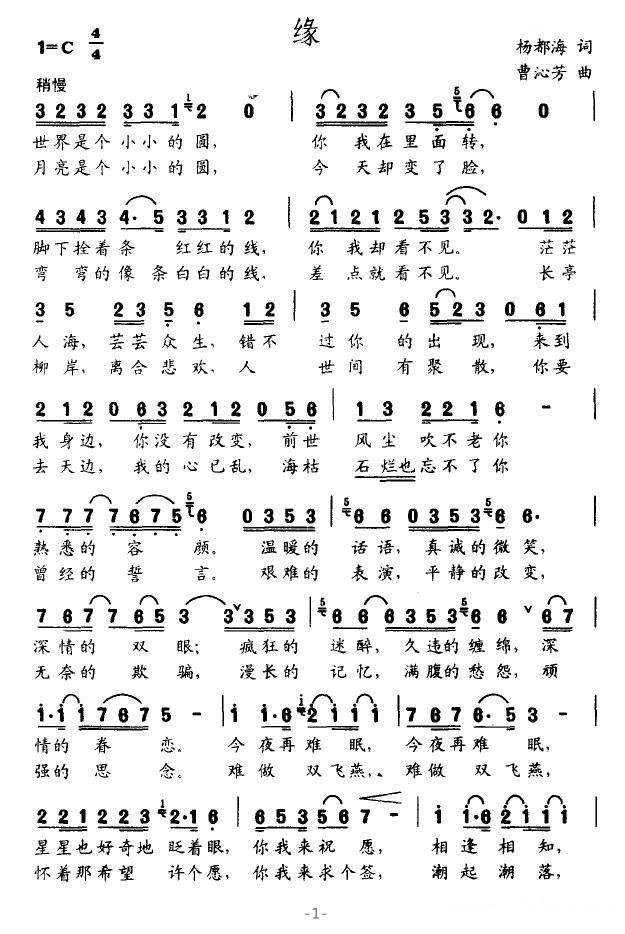 缘
1=C 4/4
杨都海 词
曹沁芳 曲
稍慢
3 2 3 2 3 3 1 2 0 | 3 2 1 2 3 2 3 5 6 6 0
世界是个小小的圆, 你 我在里面转,
月亮是个小小的圆, 今 天却变了脸,
4 3 4 3 4· 5 3 3 1 2 | 2 1 2 1 2 5 3 3 2· 0 1 2
脚下拴着条 红红的线, 你 我却看不见。 茫茫
弯 弯的像条白白的线, 差 点就看不见。 长亭
3 5 2 3 5 6 0 1 2 | 3 5 6 5 2 3 0 6 1
人海, 芸芸众生, 错不 过你 的出现, 来到
柳岸, 离合悲欢, 人 世间 有聚散, 你要
2 1 2 0 6 3 2 1 2 0 5 6 | 1 3 2 2 1 6 -
我身边, 你没有改变, 前世 风尘吹不老你
去天边, 我的心已乱, 海枯 石烂也忘不了你
7 7 7 7 6 7 5 6 0 3 5 3 | 6 6 0 3 5 3 6 6·
熟悉的 容 颜。 温暖的 话语, 真诚的微笑,
曾经的 誓 言。 艰难的 表演, 平静的改变,
7 6 7 7 6 5 3 3 3 5 3 | 6 6 6 6 3 5 3 6 6 6 7
深情的 双眼; 疯狂的 迷醉, 久违的缠绵, 深
无奈的 欺骗, 漫长的 记忆, 满腹的愁怨, 顽
1· 1 1 7 6 7 5 - | 1 1· 6 2 1 1 1 | 7 6 7 6 5· 3 5
情的 眷 恋。 今夜再难 眠, 今夜再难 眠,
强的 思 念。 难做 双飞燕, 难做 双飞燕,
2 2 1 2 2 3 2· 1 6 | 6 5 3 5 6 7 - | 1 1· 6 2 1 1 1
星星也好奇地 眨着眼, 你我来祝愿, 相逢相知,
怀着那希望 许个愿, 你我来求个签, 潮起潮落,
-1-